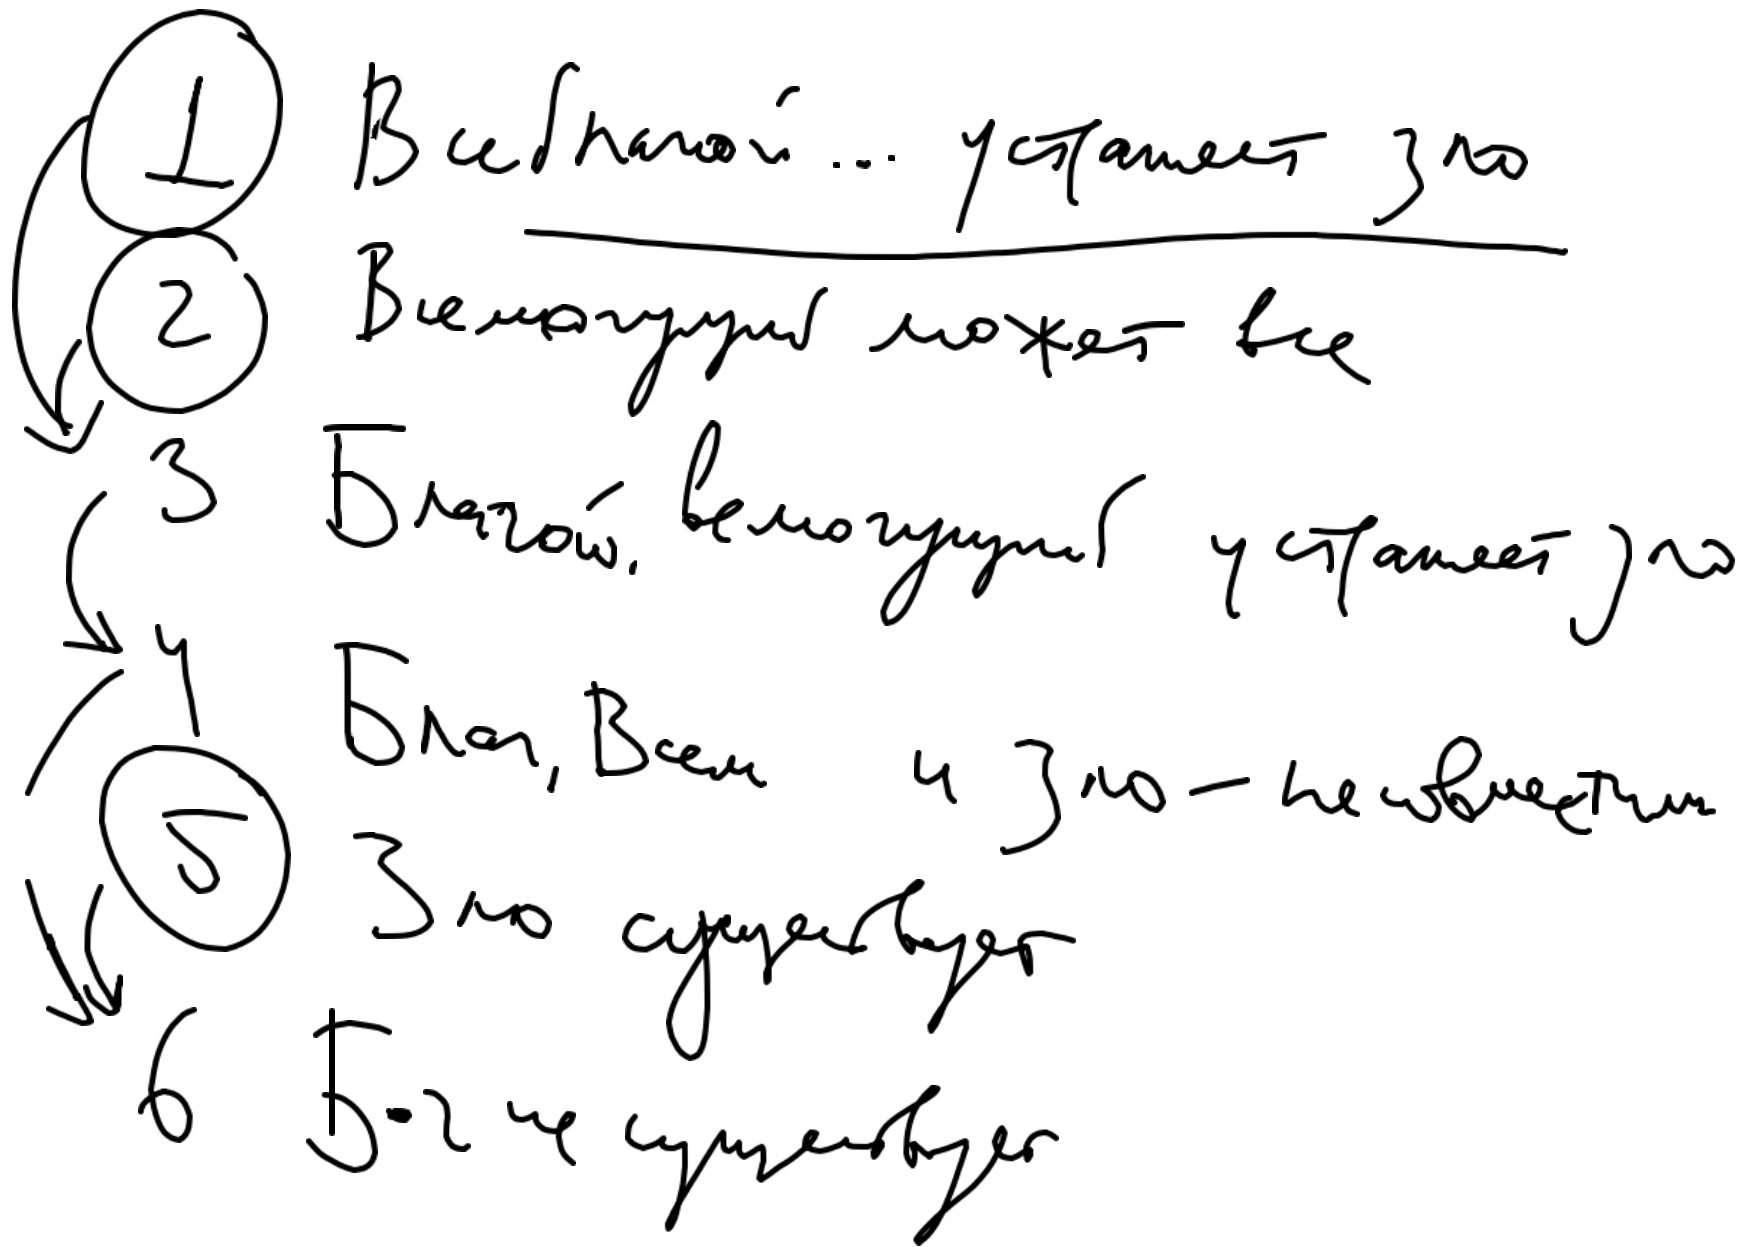 1 Всеблагой... устраняет зло
2 Всемогущий может все
3 Благой, всемогущий устраняет зло
4 Благ, Всем и Зло - несовместим
5 Зло существует
6 Б-г не существует